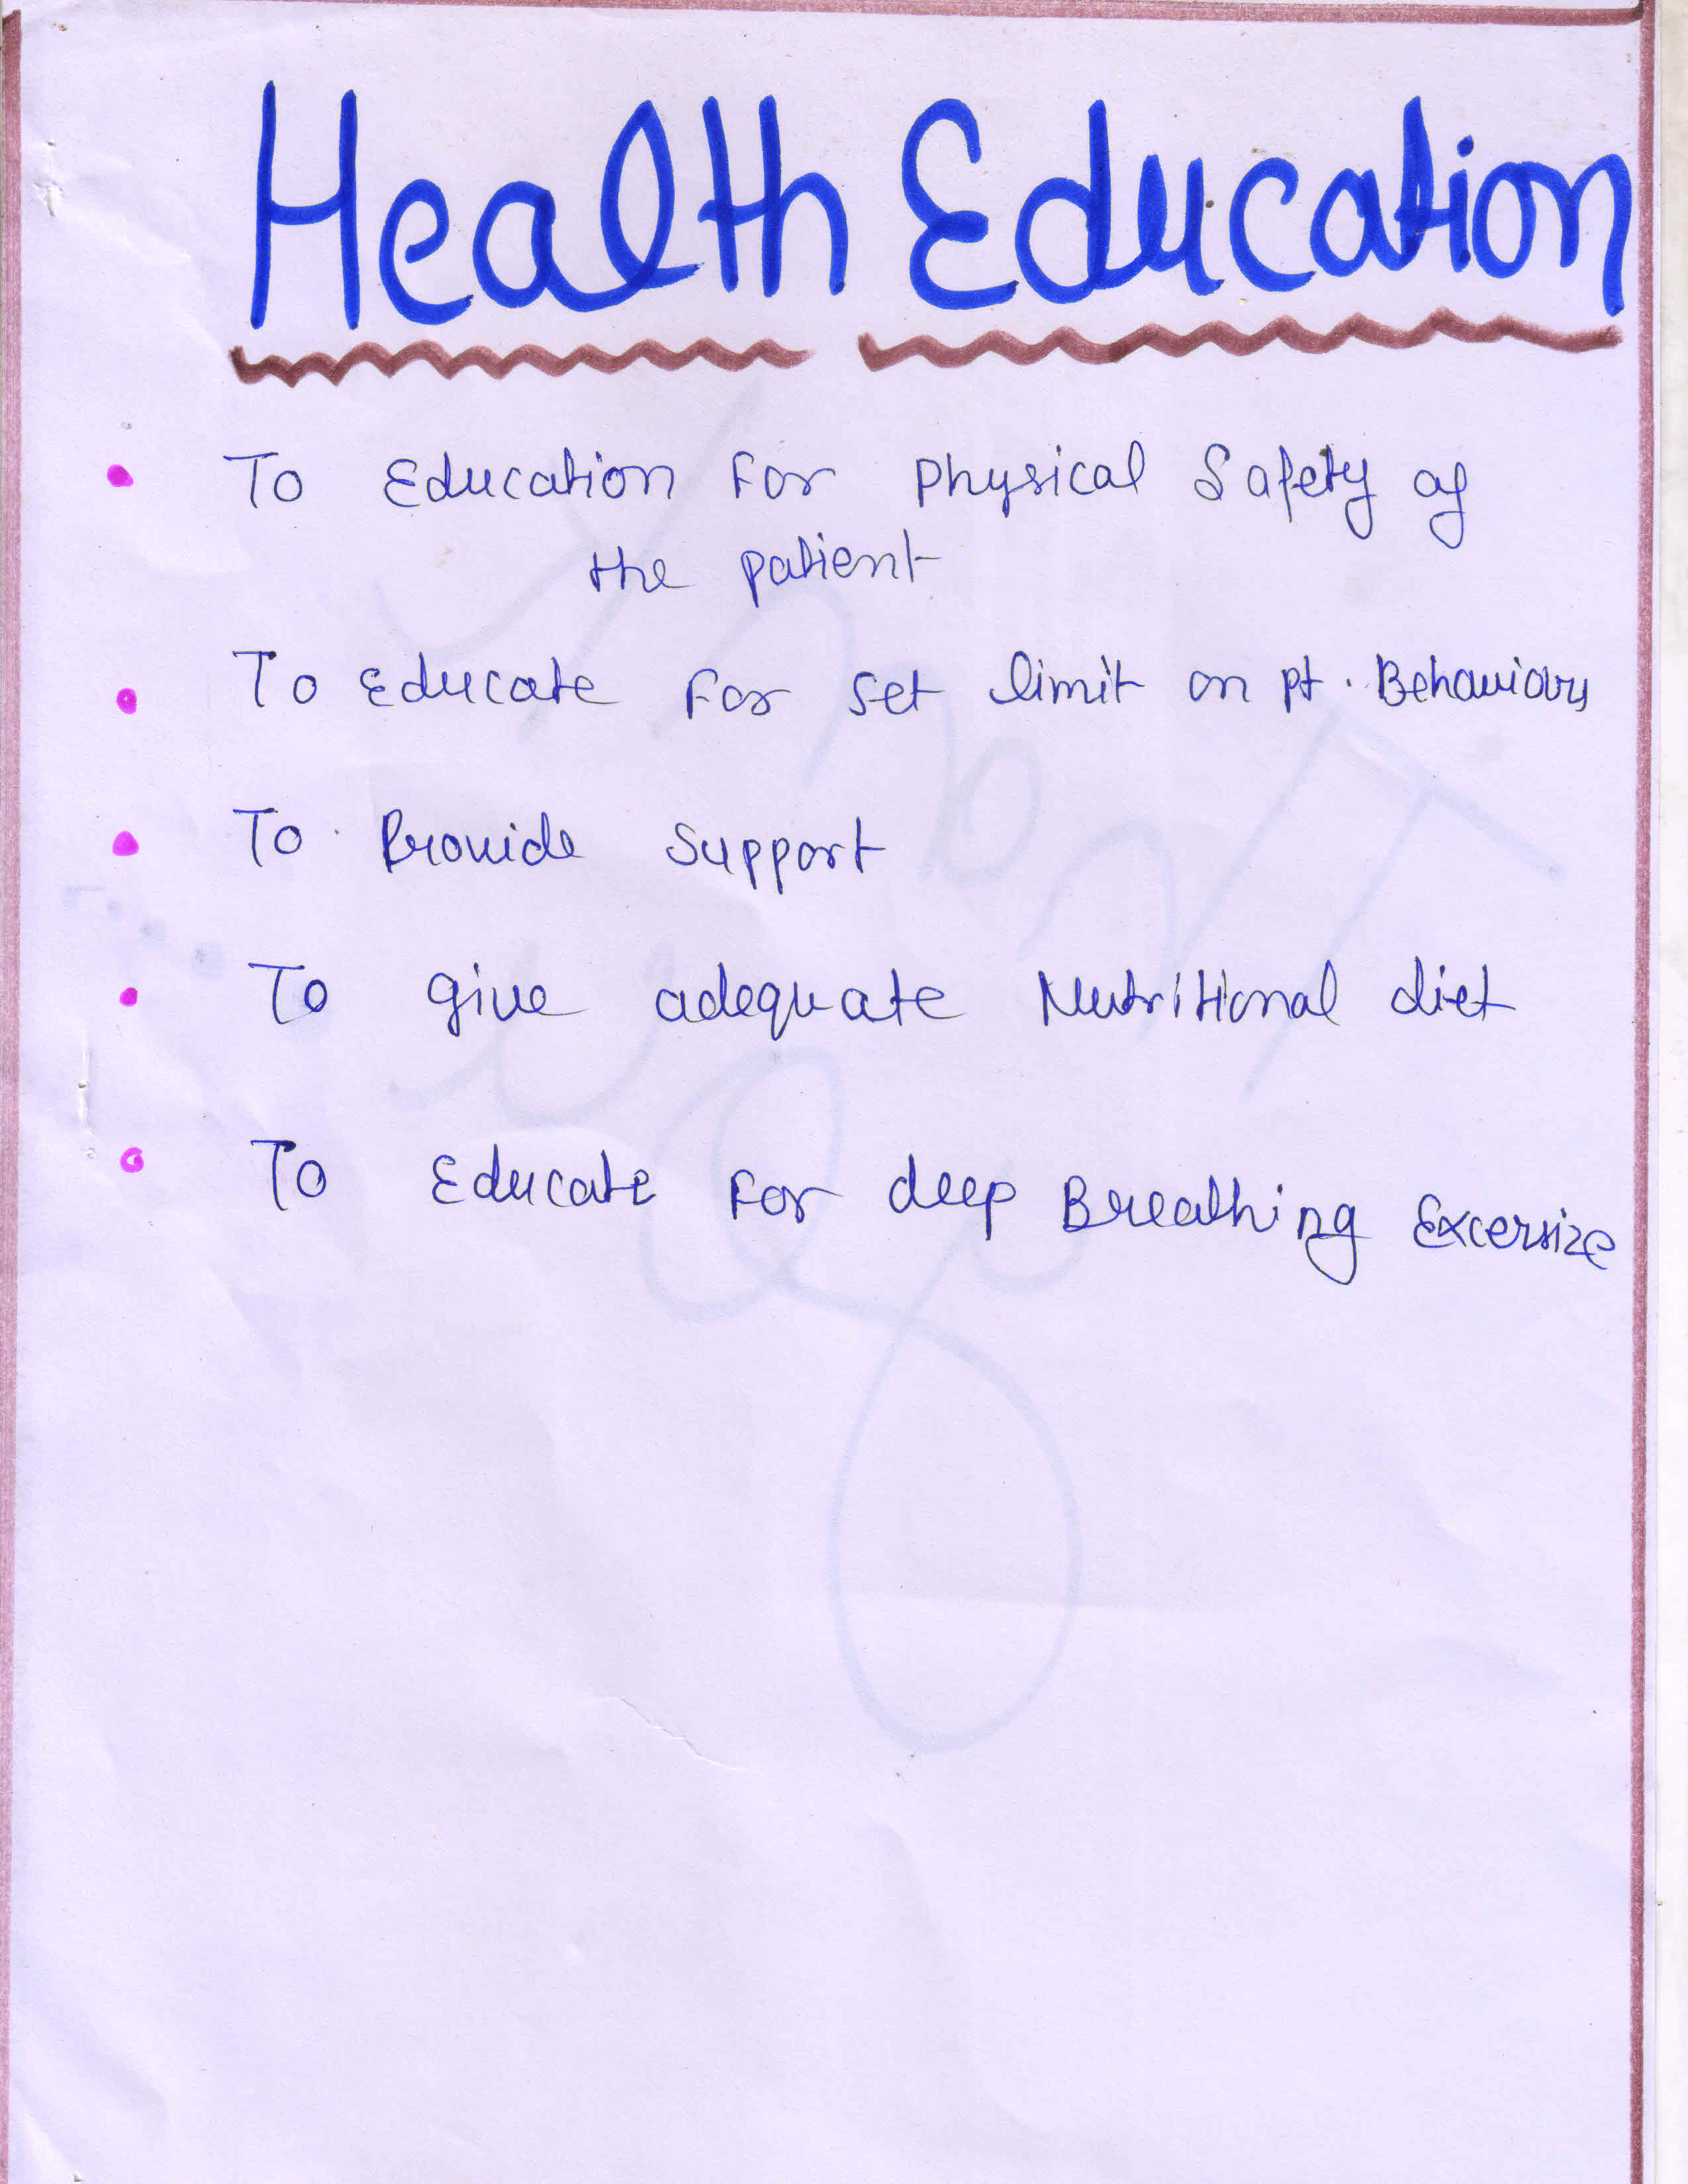 Health Education
To Education For Physical Safety of
the patient
To Educate For set limit on pt. Behaviours
To Provide Support
To give adequate Nutritional diet
To Educate For deep Breathing Excersize
Thank
you